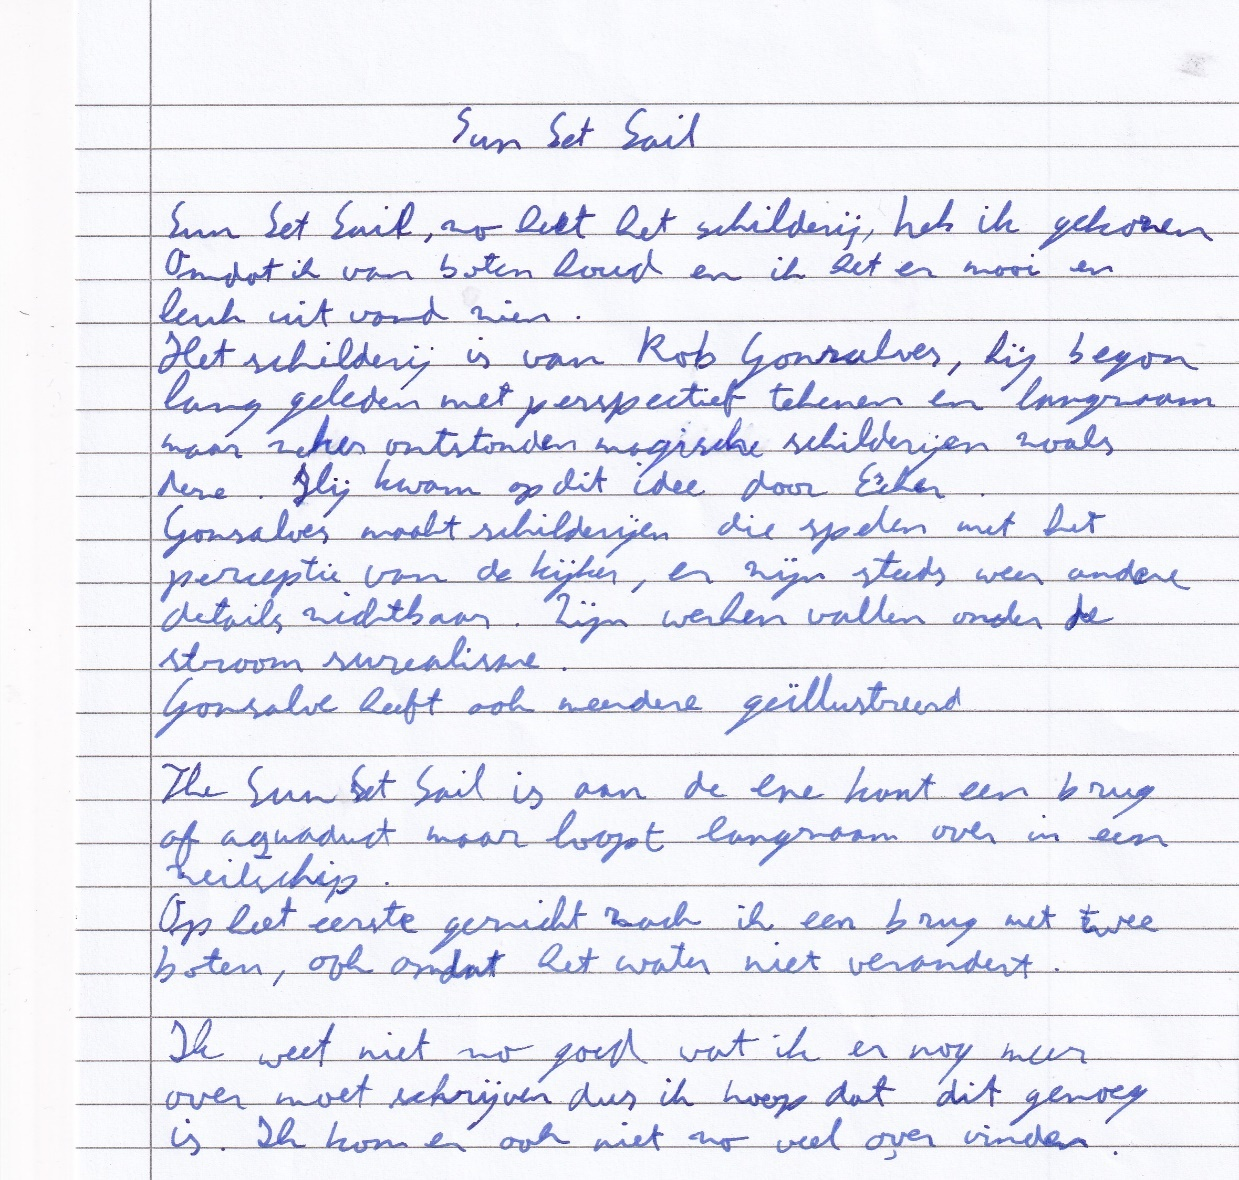 Sun Set Sail
Sun Set Sail, zo heet het schilderij, heb ik gekozen
Omdat ik van boten houd en ik het er mooi en
leuk uit vond zien.
Het schilderij is van Rob Gonsalves, hij begon
lang geleden met perspectief tekenen en langzaam
maar zeker ontstonden magische schilderijen zoals
deze. Hij kwam op dit idee door Escher.
Gonsalves maakt schilderijen die spelen met het
perceptie van de kijker, er zijn steeds weer andere
details zichtbaar. Zijn werken vallen onder de
stroom surealisme.
Gonsalve heeft ook meerdere geïllustreerd
The Sun Set Sail is aan de ene kant een brug
of aquaduct maar loopt langzaam over in een
zeilschip.
Op het eerste gezicht zach ik een brug met twee
boten, ook omdat het water niet verandert.
Ik weet niet zo goed wat ik er nog meer
over moet schrijven dus ik hoop dat dit genoeg
is. Ik kon er ook niet zo veel over vinden.